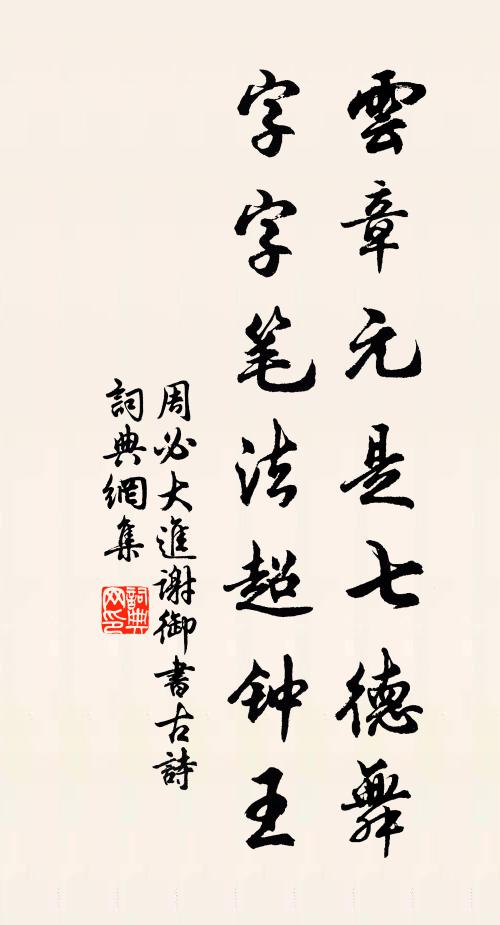 雲章元是七德舞
字字笔法超钟王
周必大進謝御書古詩
詞典網集
詞典网印